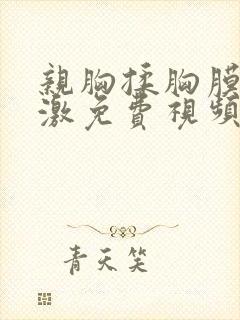 親胸揉胸膜
激免費視頻
青天笑